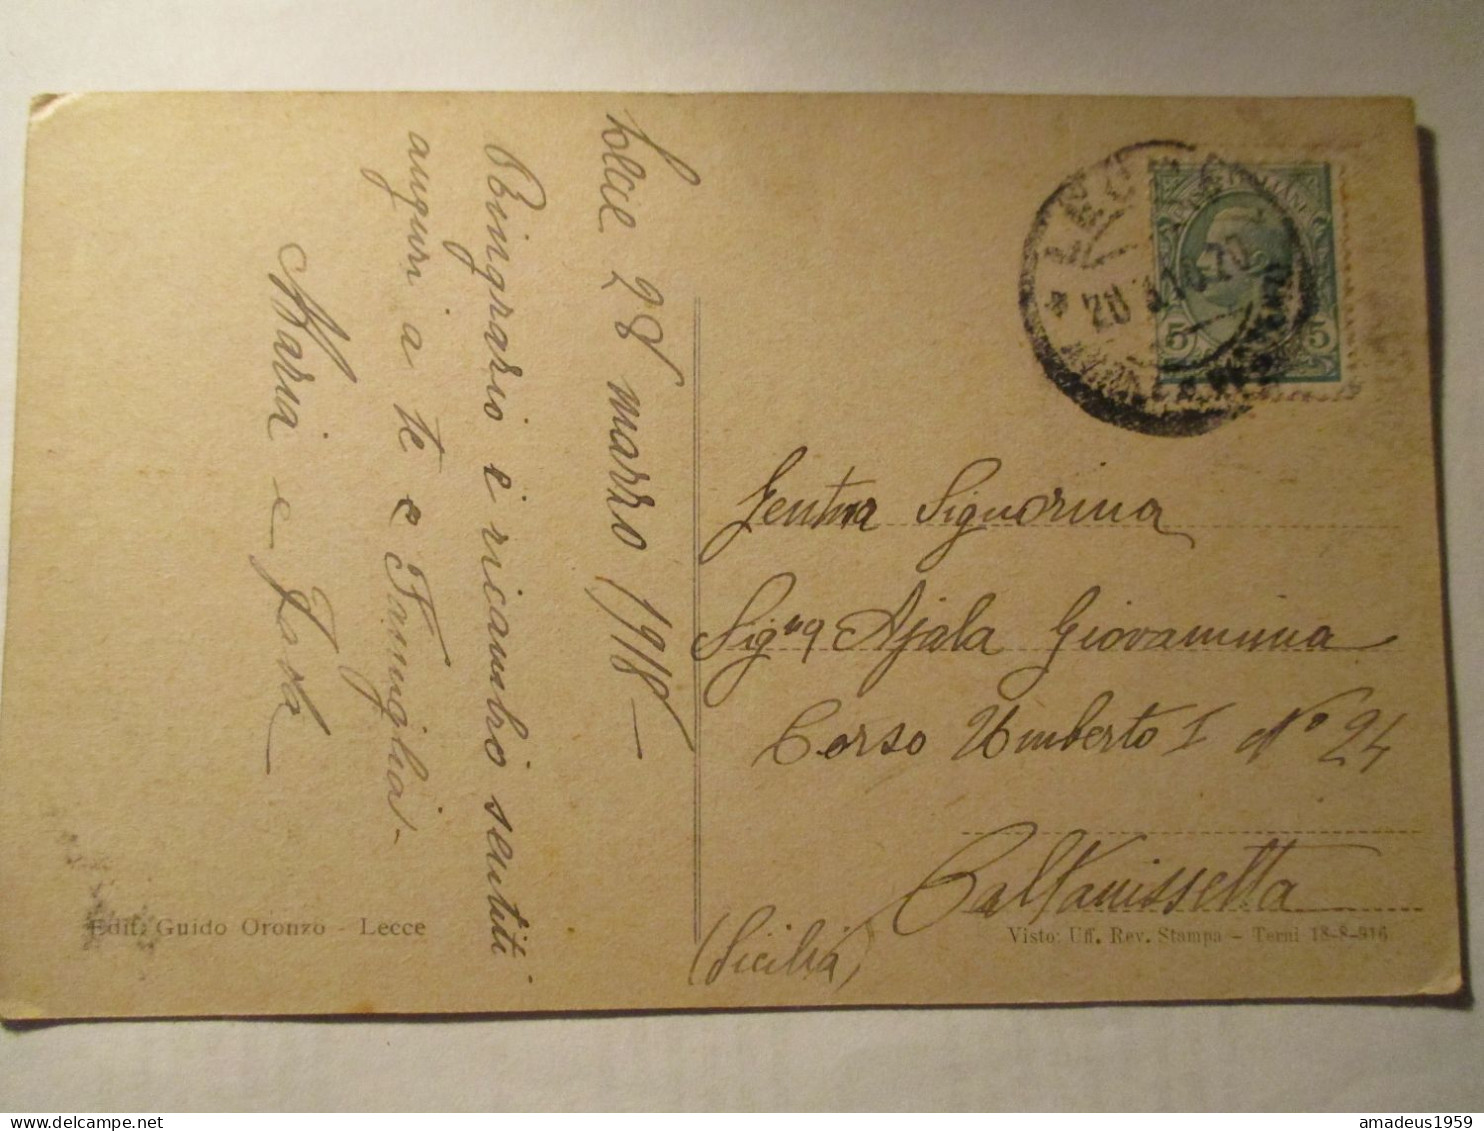 Lecce 28 marzo 1918 -
Ringrazio e ricambio sentiti
auguri a te e Famiglia -
Maria e
Gentma Signorina
Signa Ajala Giovannina
Corso Umberto I No 24
Caltanissetta
(Sicilia)
LECCE
28.3.18.20
5 5
Edit. Guido Oronzo - Lecce
Visto: Uff. Rev. Stampa - Terni 18-8-916
delcampe.net
amadeus1959